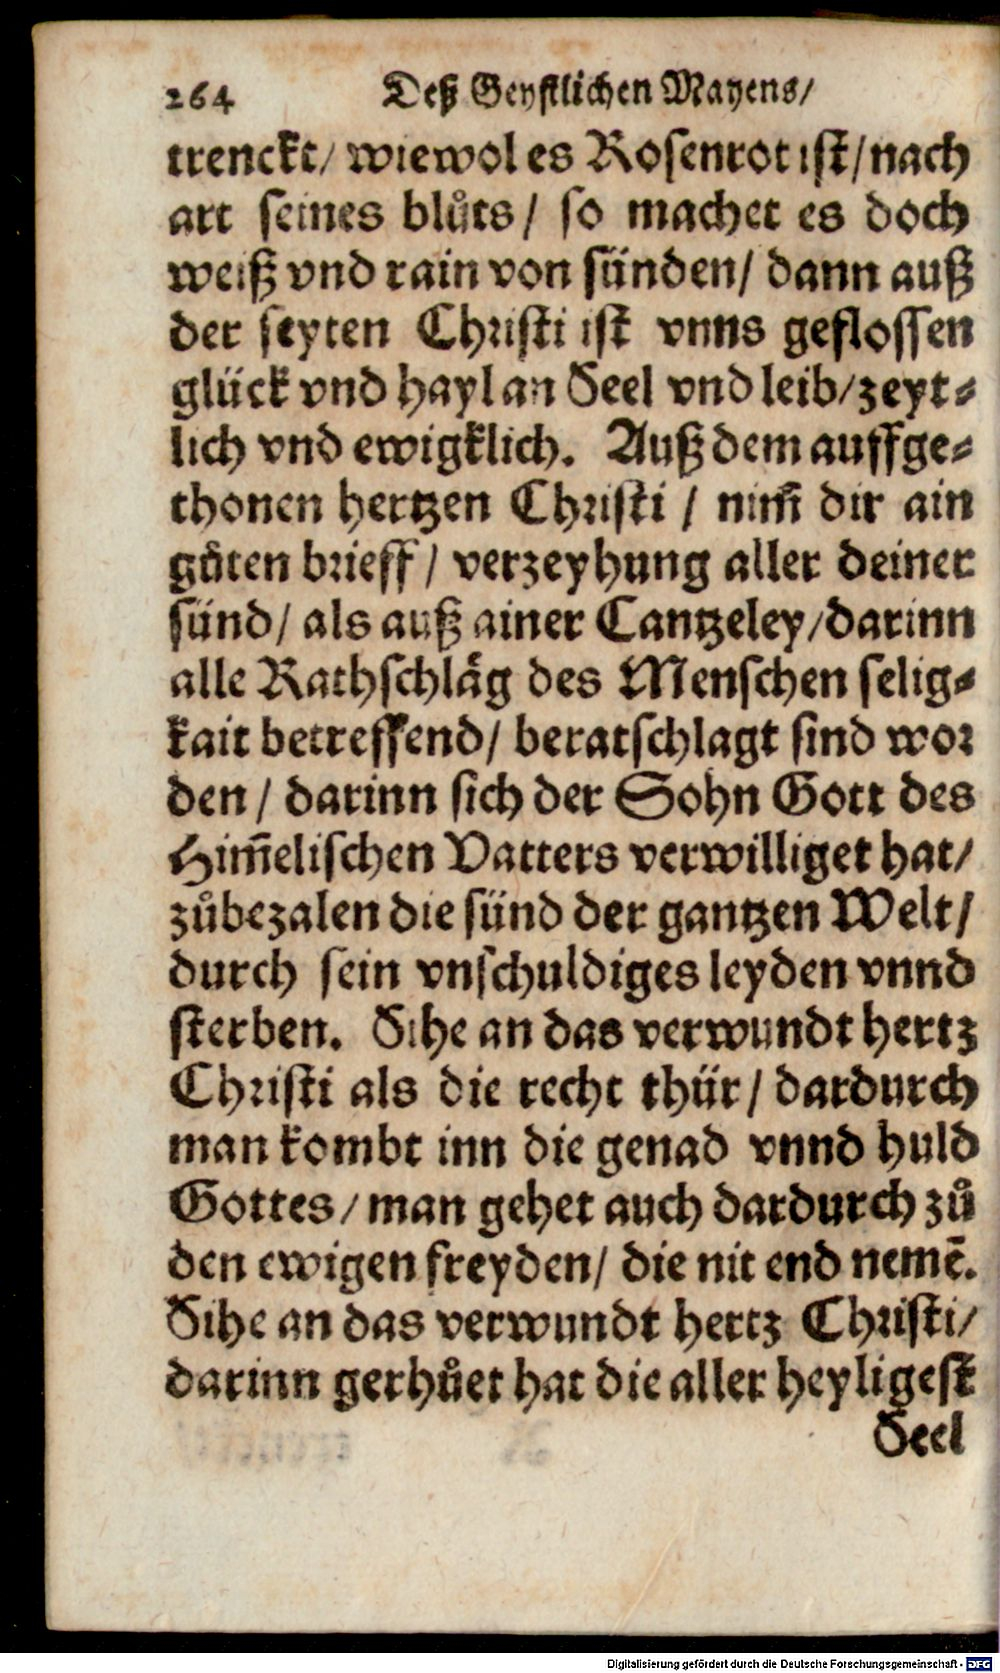 264 Deß Geystlichen Mayens/
trenckt/ wiewol es Rosenrot ist/ nach
art seines blůts/ so machet es doch
weiß vnd rain von sünden/ dann auß
der seyten Christi ist vnns geflossen
glück vnd hayl an Seel vnd leib/ zeyt⸗
lich vnd ewigklich. Auß dem auffge⸗
thonen hertzen Christi / nim̃ dir ain
gůten brieff/ verzeyhung aller deiner
sünd/ als auß ainer Cantzeley/ darinn
alle Rathschläg des Menschen selig⸗
kait betreffend/ beratschlagt sind wor
den/ darinn sich der Sohn Gott des
Him̃elischen Vatters verwilliget hat/
zůbezalen die sünd der gantzen Welt/
durch sein vnschuldiges leyden vnnd
sterben. Sihe an das verwundt hertz
Christi als die recht thür/ dardurch
man kombt inn die genad vnnd huld
Gottes/ man gehet auch dardurch zů
den ewigen freyden/ die nit end nemẽ.
Sihe an das verwundt hertz Christi/
darinn gerhůet hat die aller heyligest
Seel
Digitalisierung gefördert durch die Deutsche Forschungsgemeinschaft - DFG